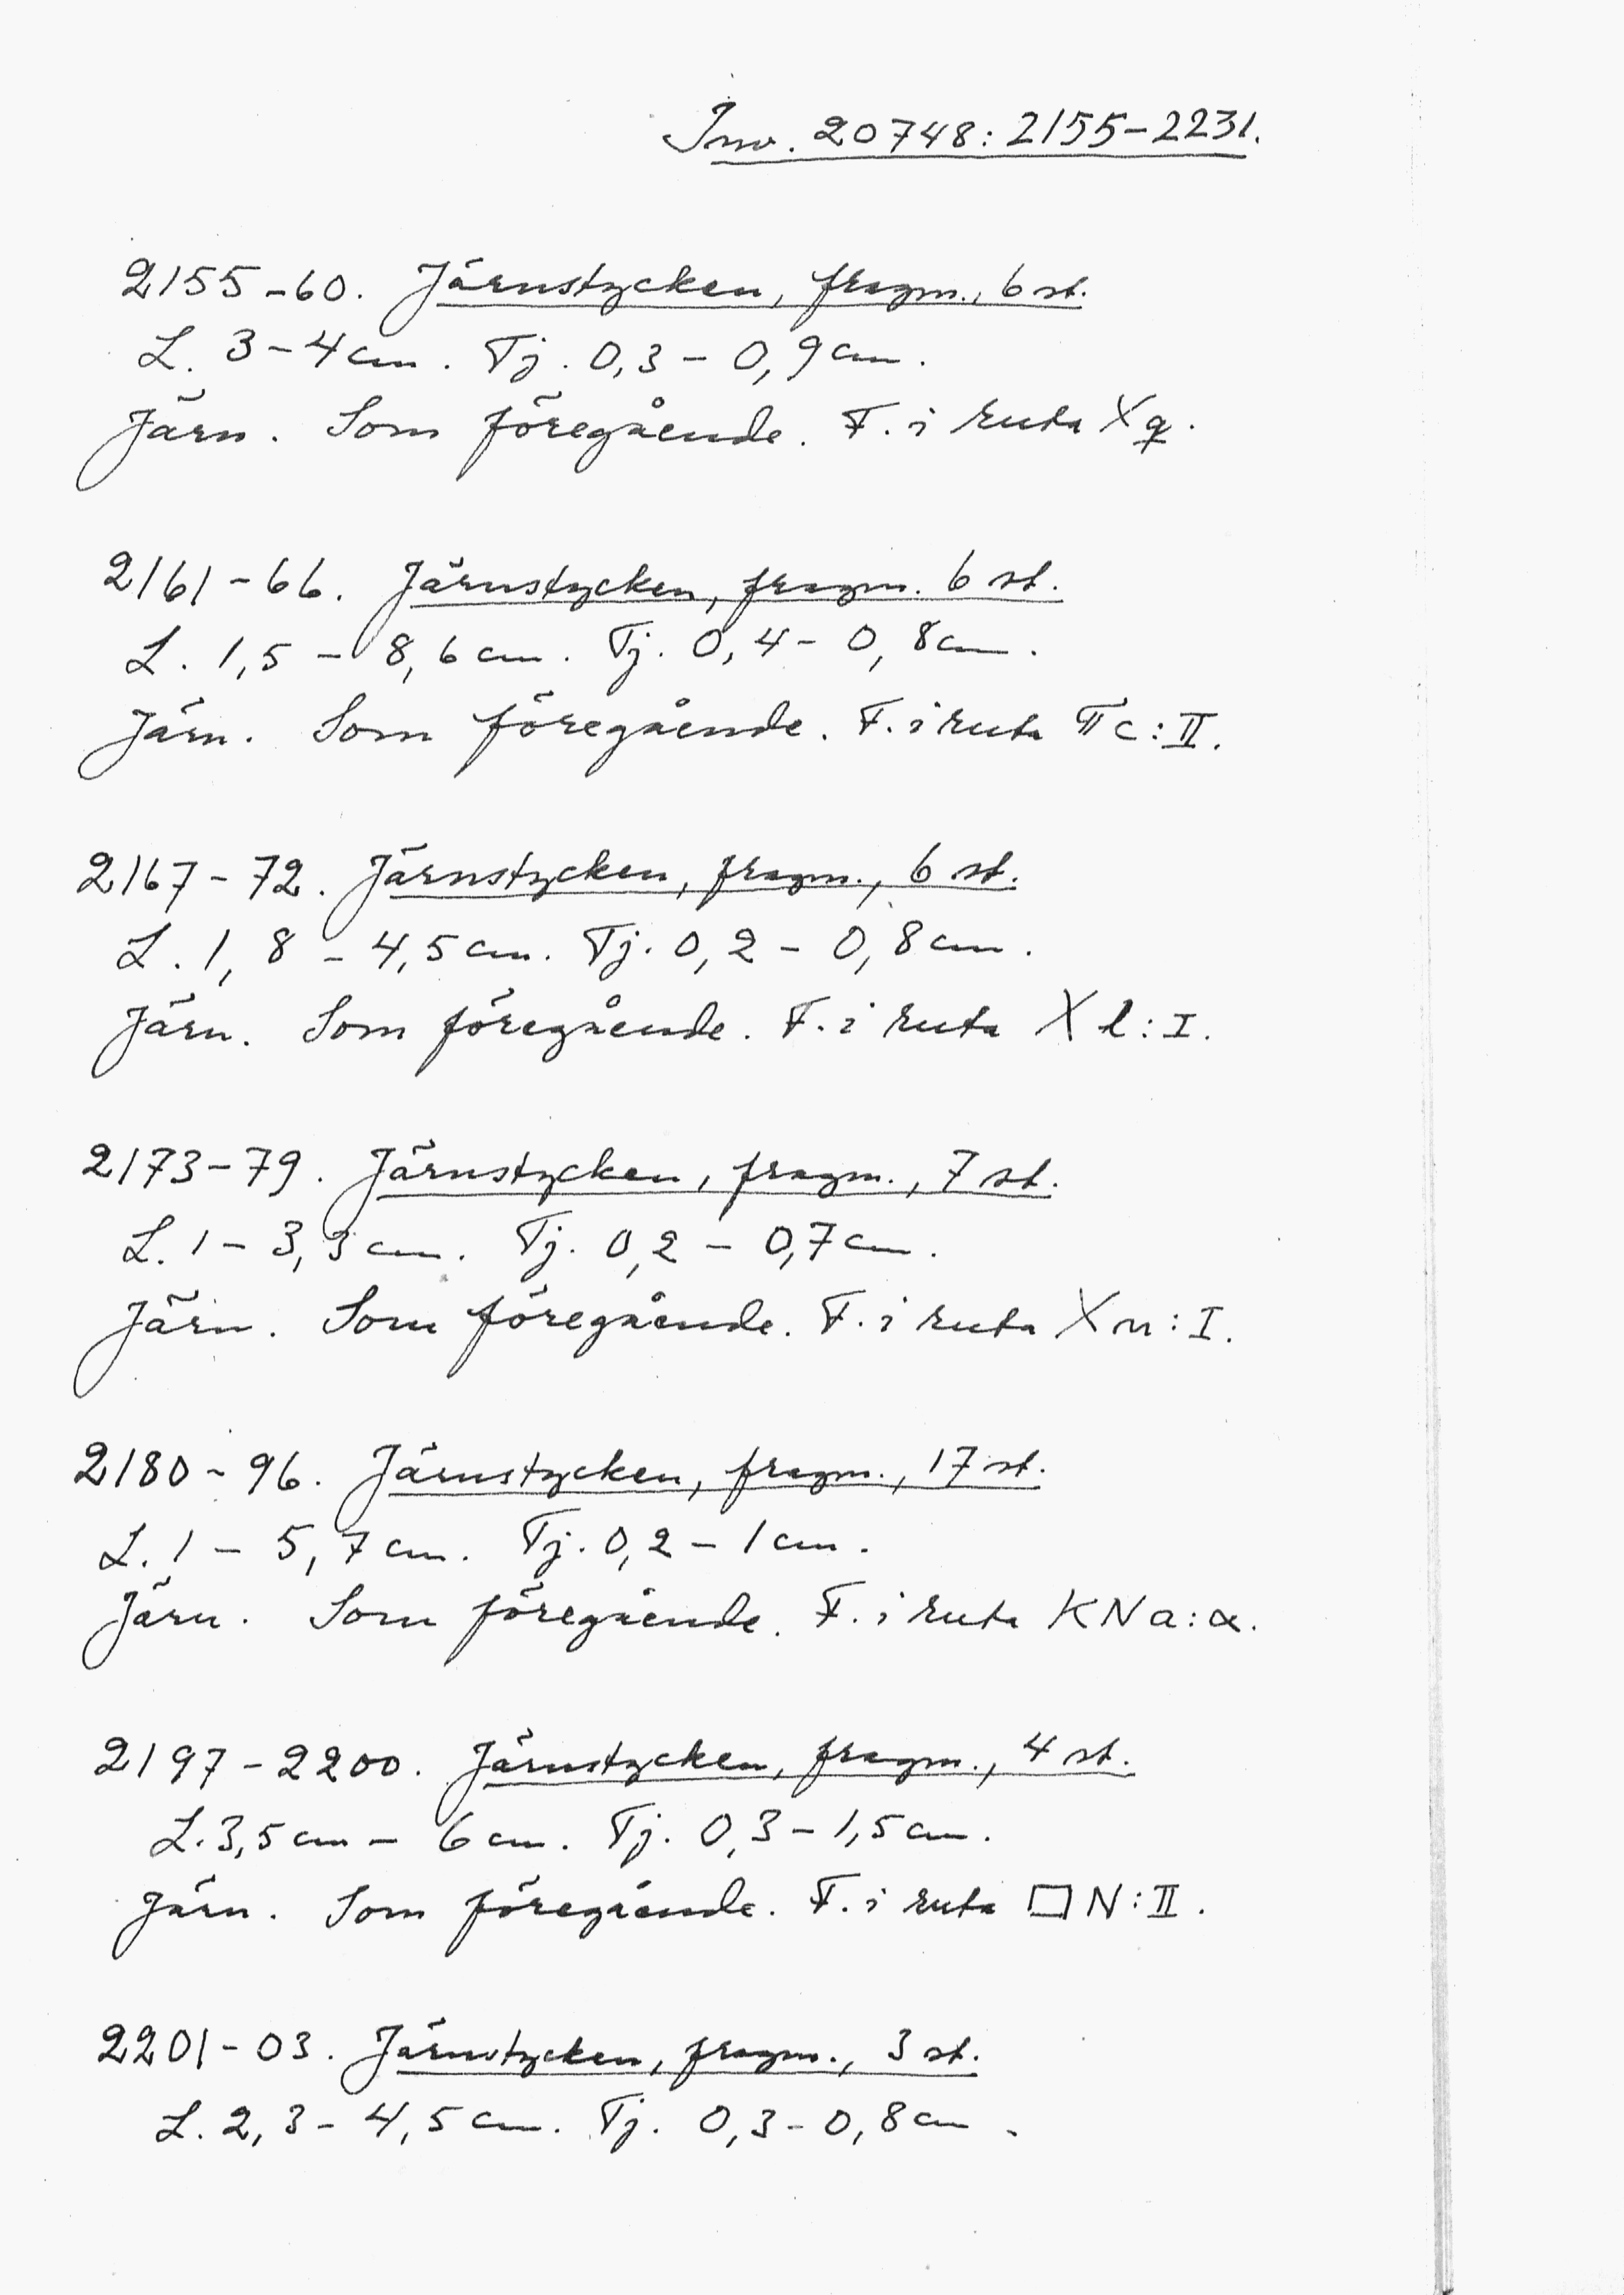 Inv. 20748: 2155-2231.
2155-60. Järnstycken, fragm., 6 st.
L. 3-4 cm. Tj. 0,3-0,9 cm.
Järn. Som föregående. F. i ruta X q.
2161-66. Järnstycken, fragm. 6 st.
L. 1,5-8,6 cm. Tj. 0,4-0,8 cm.
Järn. Som föregående. F. i ruta π c: II.
2167-72. Järnstycken, fragm., 6 st.
L. 1,8-4,5 cm. Tj. 0,2-0,8 cm.
Järn. Som föregående. F. i ruta X l: I.
2173-79. Järnstycken, fragm., 7 st.
L. 1-3,3 cm. Tj. 0,2-0,7 cm.
Järn. Som föregående. F. i ruta X n: I.
2180-96. Järnstycken, fragm., 17 st.
L. 1-5,7 cm. Tj. 0,2-1 cm.
Järn. Som föregående. F. i ruta KN a: α.
2197-2200. Järnstycken, fragm., 4 st.
L. 3,5 cm-6 cm. Tj. 0,3-1,5 cm.
Järn. Som föregående. F. i ruta □ N: II.
2201-03. Järnstycken, fragm., 3 st.
L. 2,3-4,5 cm. Tj. 0,3-0,8 cm.